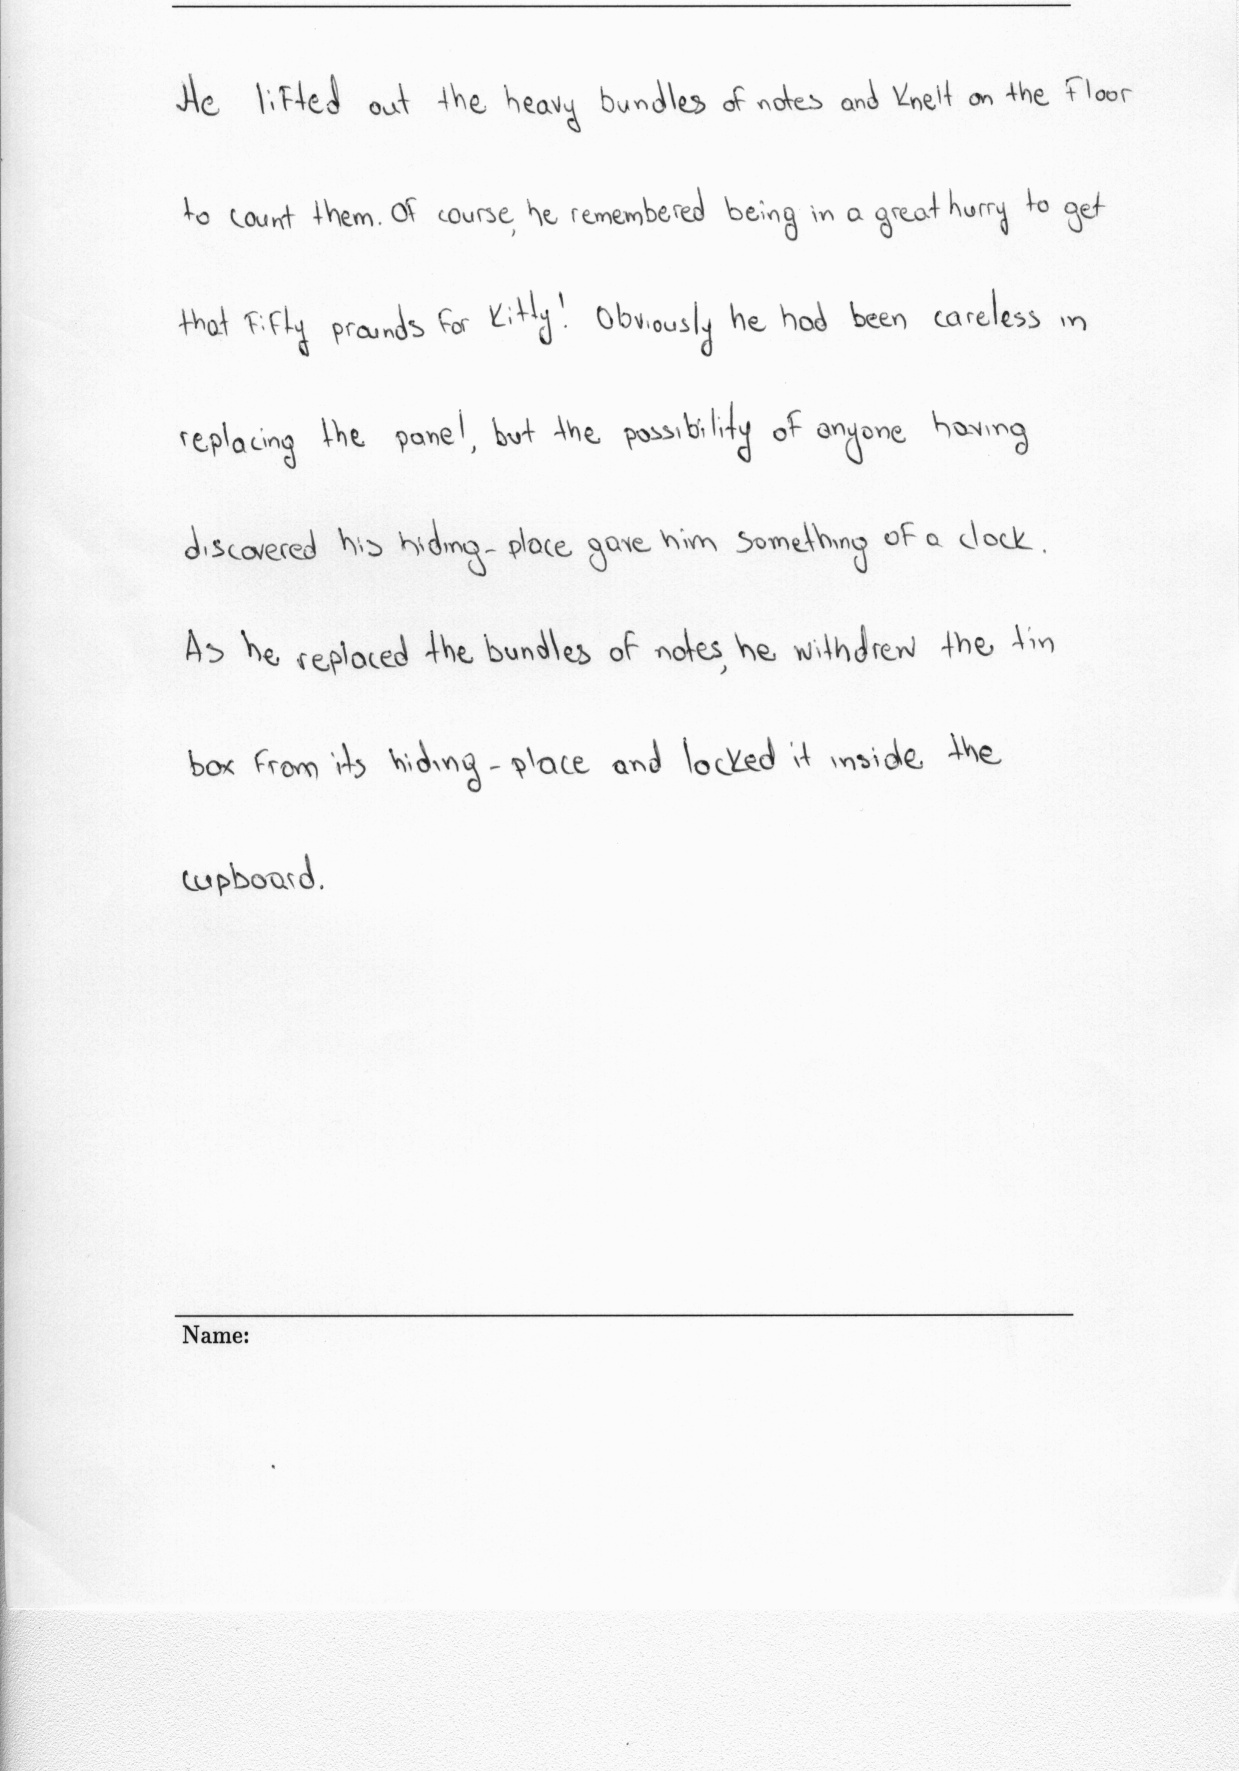 He lifted out the heavy bundles of notes and knelt on the floor
to count them. Of course, he remembered being in a great hurry to get
that fifty prounds for Kitty! Obviously he had been careless in
replacing the panel, but the possibility of anyone having
discovered his hiding-place gave him something of a clock.
As he replaced the bundles of notes, he withdrew the tin
box from its hiding-place and locked it inside the
cupboard.
Name: